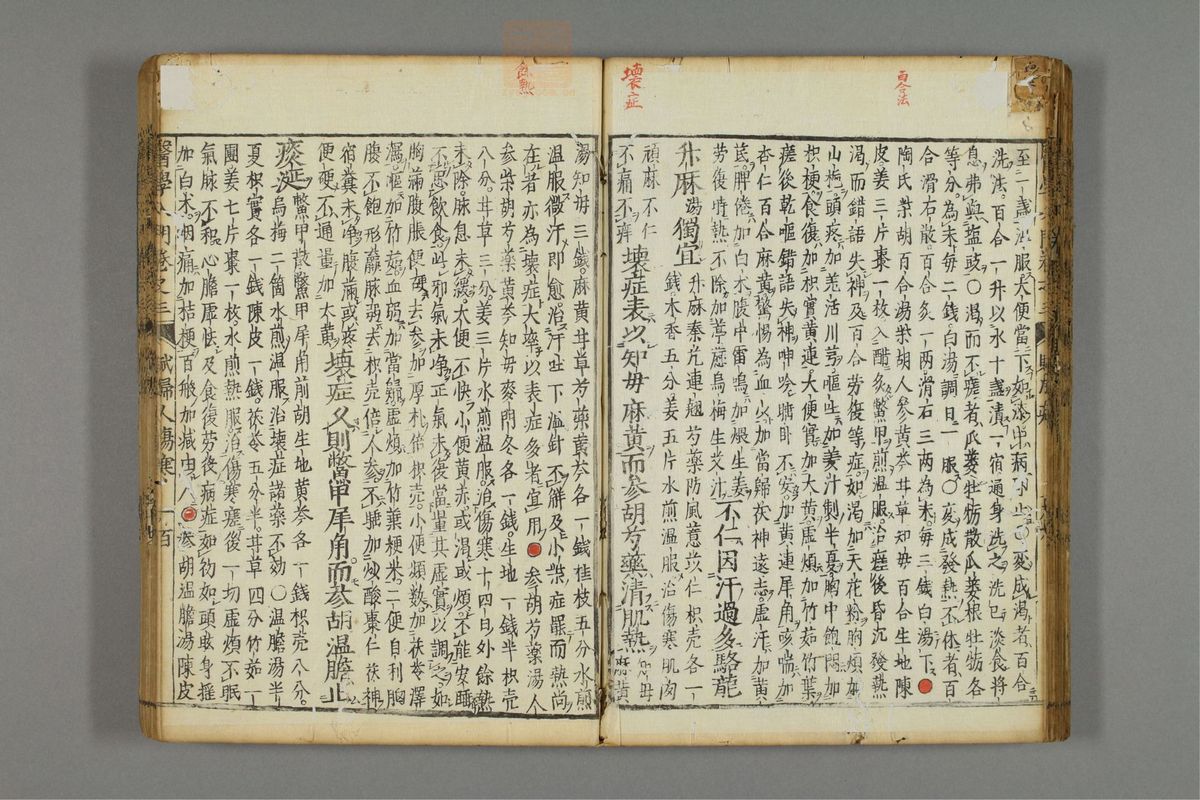 百合法
壞症
餘熱
至一盞溫服大便當下如
變成渴者百合
洗法。百合一升以水十盞漬一宿通身洗之洗已淡食將
息弗與盐豉〇渴而不瘥者瓜蔞牡蛎散瓜蔞根牡蛎各
等分。為末每二錢白湯調日一服〇変成發熱不休者百
合滑石散百合炙一兩滑石三兩為末。每三錢白湯下。
陶氏柴胡百合湯柴胡人參黄芩甘草知毋百合生地陳
皮姜三片棗一枚入醋炙鱉甲煎溫服。治瘥後昏沉發熱
渴而錯語失神及百合労復等症。如渴加天花粉胸煩加
山梔。頭疼加羗活川芎。嘔吐加姜汁制半夏胸中飽悶加
枳梗食復加枳實黄連大便實加大黄虚煩加竹茹竹葉
瘥後乾嘔錯語失神呻吟睡卧不安。加黄連犀角咳喘加
杏仁百合麻黄驚惕為血火加當歸茯神遠志。虚汗加黄
芪。脾倦加白术腹中雷鳴加煨生姜
労復時熱不除加葶藶烏梅生艾汁
不仁因汗過多駱龍
升麻湯獨宜
升麻秦艽連翹芍藥防風薏苡仁枳壳各一
錢木香五分姜五片水煎溫服治傷寒肌肉
頑麻不仁
壞症表以知毋麻黄而參胡芍藥清肌熱
知毋
麻黄
不痛不痒
湯知毋三錢。麻黄甘草芍藥黄芩各一錢桂枝五分水煎
溫服微汗即愈治汗吐下溫針不觧及小柴症罷而熱尚
在者亦為壞症大率以表症多者宜用
參胡芍藥湯人
參柴胡芍藥黄芩知毋麥門冬各一錢。生地一錢半枳壳
八分。甘草三分姜三片水煎溫服。治傷寒十四日外餘熱
未除。脉息未緩。大便不快小便黄赤或渴或煩。不能安睡
不思飲食此邪氣未净正氣未復當量其虚實以調之如
胸滿腹脹便硬去參加厚朴倍枳壳。小便煩数。加茯苓澤
瀉。嘔加竹茹血弱加當歸虚煩加竹葉粳米二便自利胸
腹不飽形羸脉弱去枳壳倍人參。不睡加炒酸棗仁茯神
宿糞未净腹滿或疼
便硬不通量加大黄
壞症久則鱉甲犀角而參胡溫膽止
痰涎
鱉甲散鱉甲犀角前胡生地黄芩各一錢枳壳八分。
烏梅二箇水煎溫服治壞症諸藥不効〇溫膽湯半
夏枳實各一錢陳皮一錢。茯苓五分半。甘草四分竹茹一
團姜七片棗一枚。水煎熱服治傷寒瘥後一切虚煩不眠
氣脉不和心膽虚怯及食復労後病症如初如頭眩身搖
加白术。咽痛加桔梗百般加减由人
參胡溫膽湯陳皮
醫學入門卷之三
賦婦人傷寒
一百